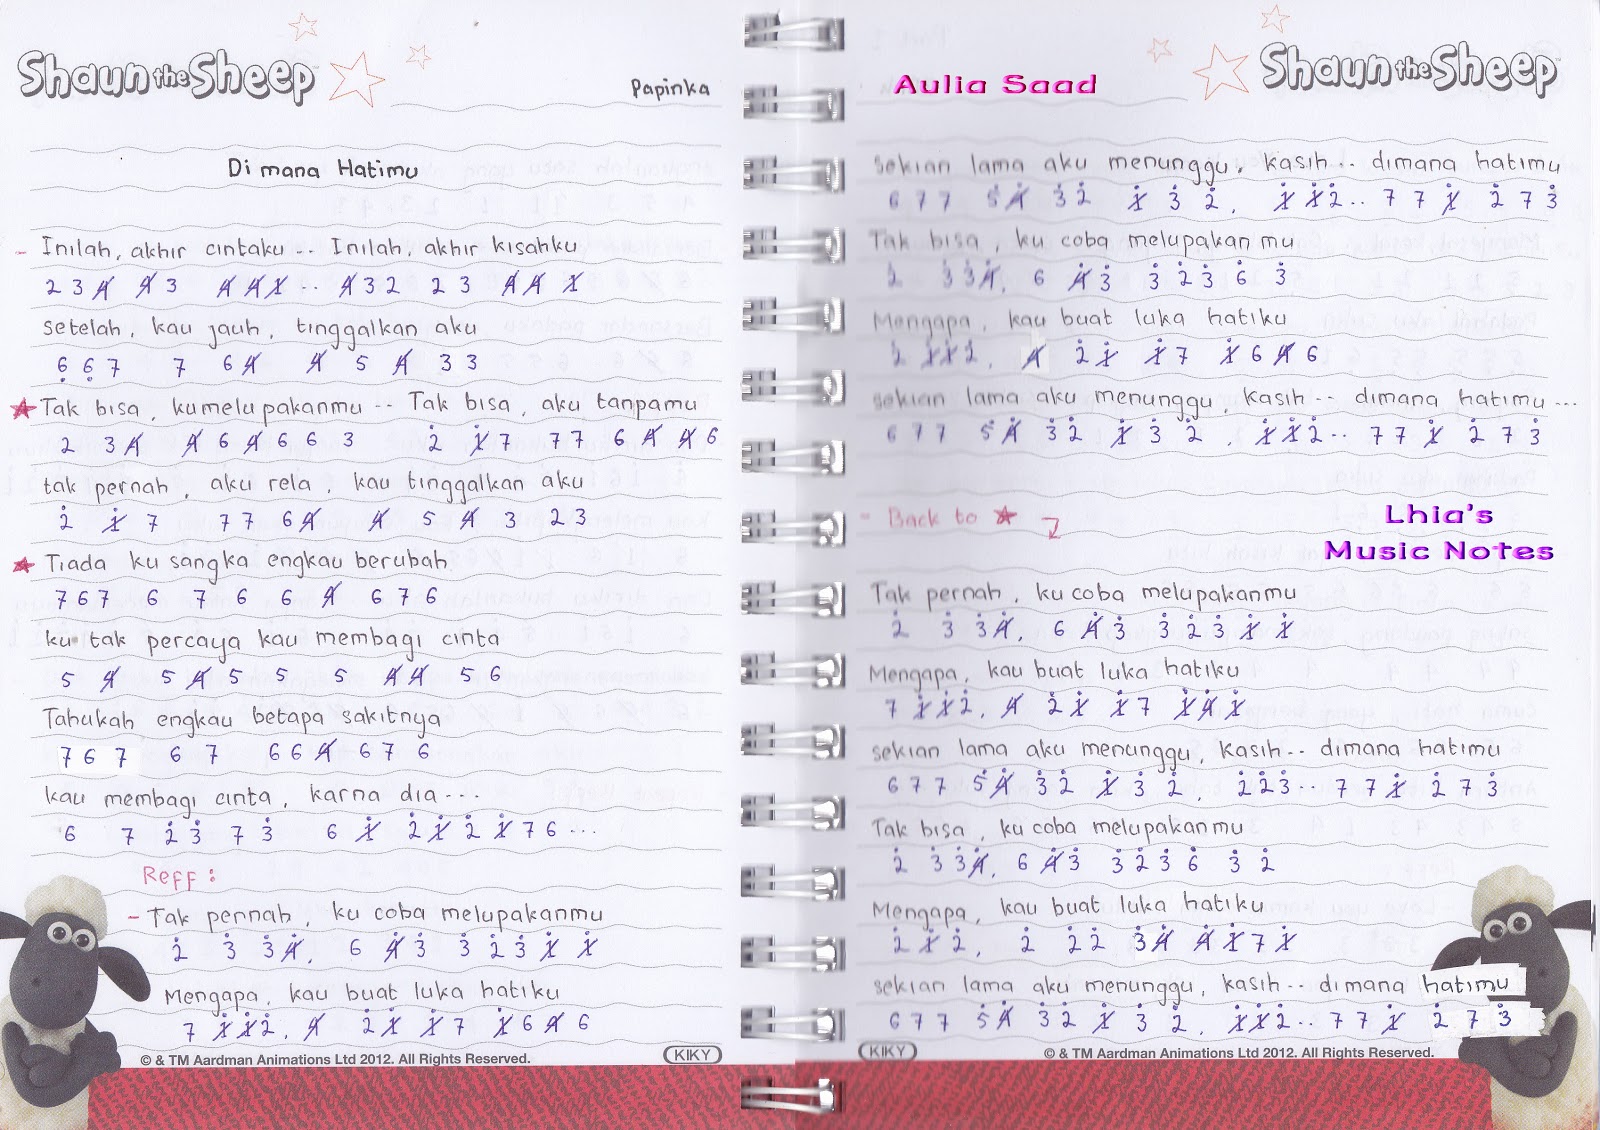 Shaun the Sheep
Papinka
Di mana Hatimu
- Inilah, akhir cintaku .. Inilah, akhir kisahku
2 3 4̸ 4̸ 3 4̸ 4̸ 1̸ .. 4̸ 3 2 2 3 4̸ 4̸ 1̸
setelah, kau jauh, tinggalkan aku
6̣ 6̣ 7 7 6 4̸ 4̸ 5 4̸ 3 3
★ Tak bisa, kumelupakanmu -- Tak bisa, aku tanpamu
2 3 4̸ 4̸ 6 4̸ 6 6 3 2̇ 1̸̇ 7 7 7 6 4̸ 4̸ 6
tak pernah, aku rela, kau tinggalkan aku
2̇ 1̸̇ 7 7 7 6 4̸ 4̸ 5 4̸ 3 2 3
★ Tiada ku sangka engkau berubah
7 6 7 6 7 6 6 4̸ 6 7 6
ku tak percaya kau membagi cinta
5 4̸ 5 4̸ 5 5 5 4̸ 4̸ 5 6
Tahukah engkau betapa sakitnya
7 6 7 6 7 6 6 4̸ 6 7 6
kau membagi cinta, karna dia ...
6 7 2̇ 3̇ 7 3̇ 6 1̸̇ 2̇ 1̸̇ 2̇ 1̸̇ 7 6 ...
Reff :
- Tak pernah, ku coba melupakanmu
2̇ 3̇ 3̇ 4̸̇, 6 4̸̇ 3̇ 3̇ 2̇ 3̇ 1̸̇ 1̸̇
Mengapa, kau buat luka hatiku
7 1̸̇ 1̸̇ 2̇, 4̸ 2̇ 1̸̇ 1̸̇ 7 1̸̇ 6 4̸ 6
© & TM Aardman Animations Ltd 2012. All Rights Reserved.
KIKY
Aulia Saad
Shaun the Sheep
sekian lama aku menunggu, kasih .. dimana hatimu
6 7 7 5 4̸̇ 3̇ 2̇ 1̸̇ 3̇ 2̇, 1̸̇ 1̸̇ 2̇ .. 7 7 1̸̇ 2̇ 7 3̇
Tak bisa, ku coba melupakan mu
2̇ 3̇ 3̇ 4̸̇, 6 4̸̇ 3̇ 3̇ 2̇ 3̇ 6̇ 3̇
Mengapa, kau buat luka hatiku
2̇ 1̸̇ 1̸̇ 2̇, 4̸ 2̇ 1̸̇ 1̸̇ 7 1̸̇ 6 4̸ 6
sekian lama aku menunggu, kasih -- dimana hatimu ...
6 7 7 5 4̸̇ 3̇ 2̇ 1̸̇ 3̇ 2̇, 1̸̇ 1̸̇ 2̇ .. 7 7 1̸̇ 2̇ 7 3̇
- Back to ★
Lhia's
Music Notes
Tak pernah, ku coba melupakanmu
2̇ 3̇ 3̇ 4̸̇, 6 4̸̇ 3̇ 3̇ 2̇ 3̇ 1̸̇ 1̸̇
Mengapa, kau buat luka hatiku
7 1̸̇ 1̸̇ 2̇, 4̸ 2̇ 1̸̇ 1̸̇ 7 1̸̇ 4̸̇ 1̸̇
sekian lama aku menunggu, kasih -- dimana hatimu
6 7 7 5 4̸̇ 3̇ 2̇ 1̸̇ 3̇ 2̇, 2̇ 2̇ 3̇ .. 7 7 1̸̇ 2̇ 7 3̇
Tak bisa, ku coba melupakanmu
2̇ 3̇ 3̇ 4̸̇, 6 4̸̇ 3̇ 3̇ 2̇ 3̇ 6̇ 3̇ 2̇
Mengapa, kau buat luka hatiku
2̇ 1̸̇ 2̇, 2̇ 2̇ 2̇ 3̇ 4̸̇ 4̸̇ 1̸̇ 7 1̸̇
sekian lama aku menunggu, kasih -- dimana hatimu
6 7 7 5 4̸̇ 3̇ 2̇ 1̸̇ 3̇ 2̇, 1̸̇ 1̸̇ 2̇ .. 7 7 1̸̇ 2̇ 7 3̇
KIKY
© & TM Aardman Animations Ltd 2012. All Rights Reserved.